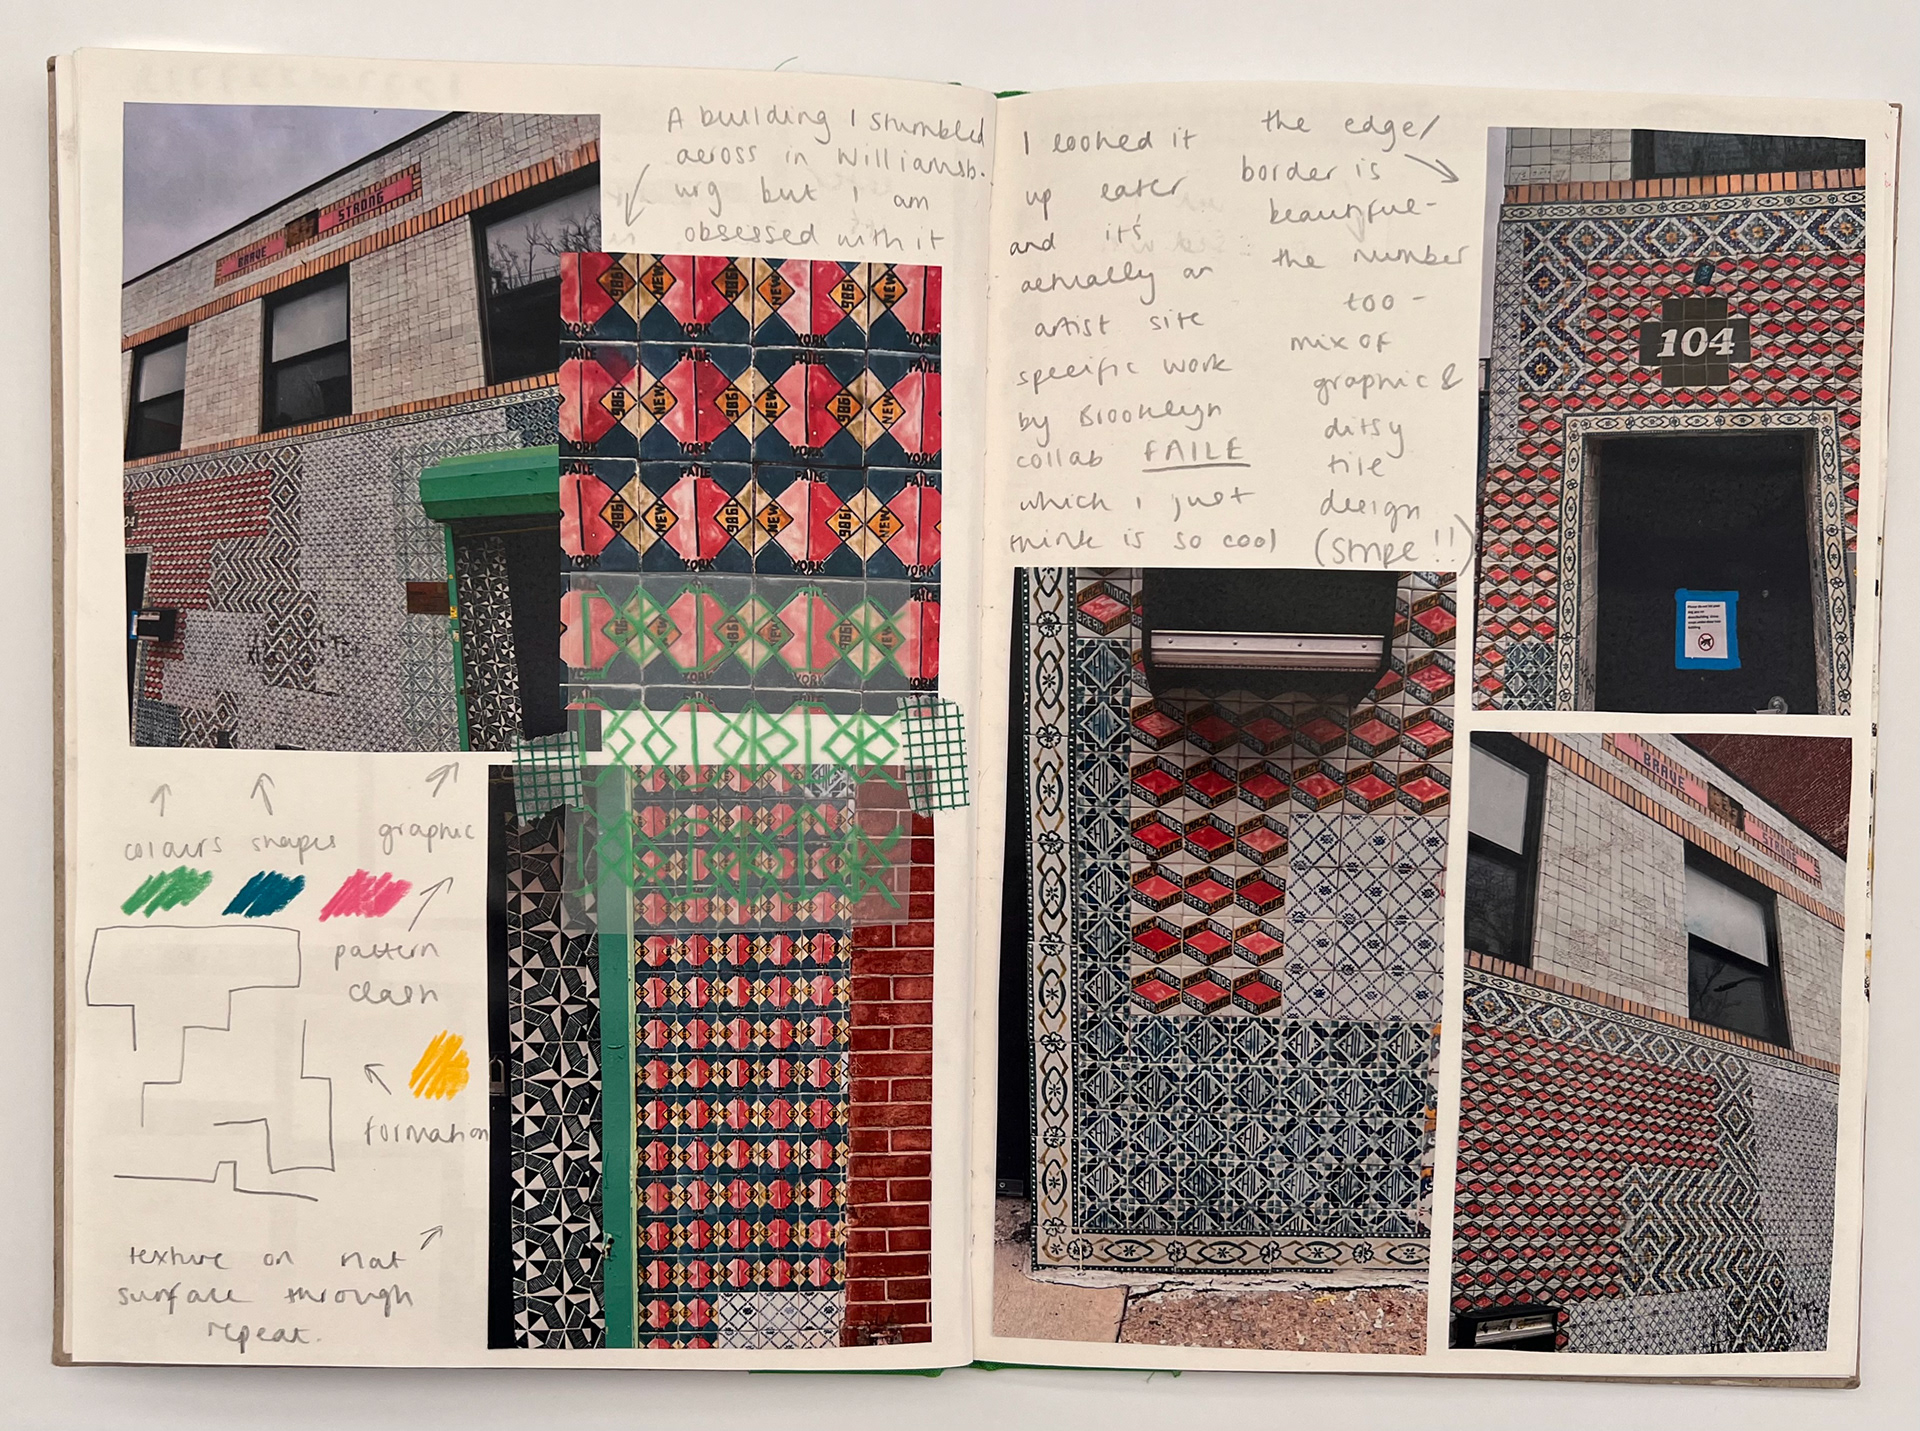 A building I stumbled
across in Williamsb-
urg but I am
obsessed with it
BRAVE
STRONG
104
NEW
1986
YORK
FAILE
colours shapes graphic
pattern
clash
formation
texture on flat
surface through
repeat.
I looked it
up later
and it's
actually an
artist site
specific work
by Brooklyn
collab FAILE
which I just
think is so cool
the edge/
border is
beautiful-
the number
too -
mix of
graphic &
ditsy
tile
design
(stripe !!)
104
CRAZY MINDS
BREAK YOUNG
FAILE
BRAVE
STRONG